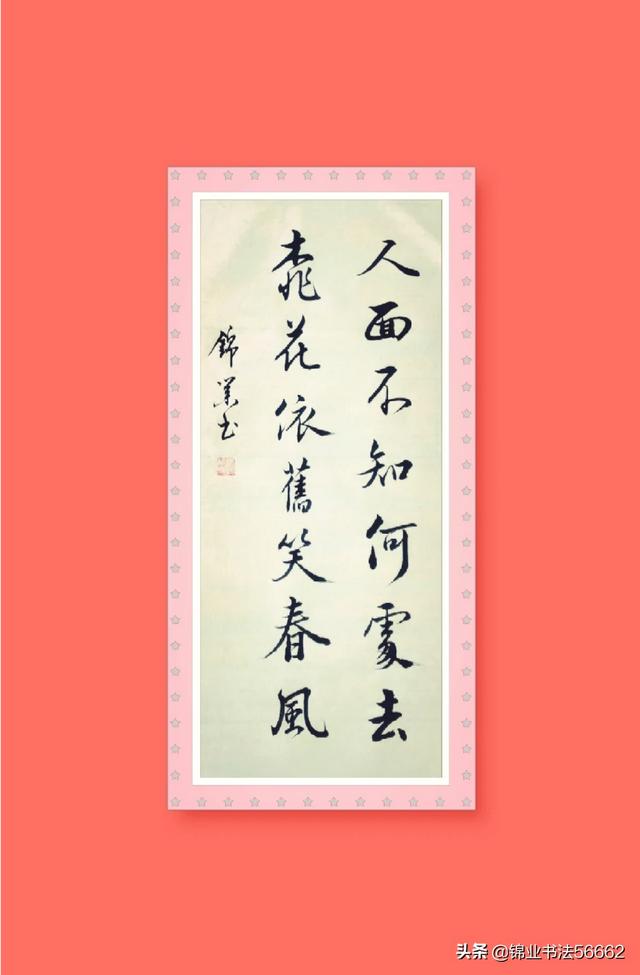 人面不知何處去
桃花依舊笑春風
錦業书
头条 @锦业书法56662